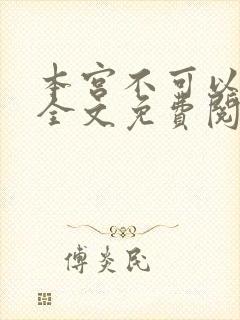 本宫不可以
全文免费阅
傅炎民